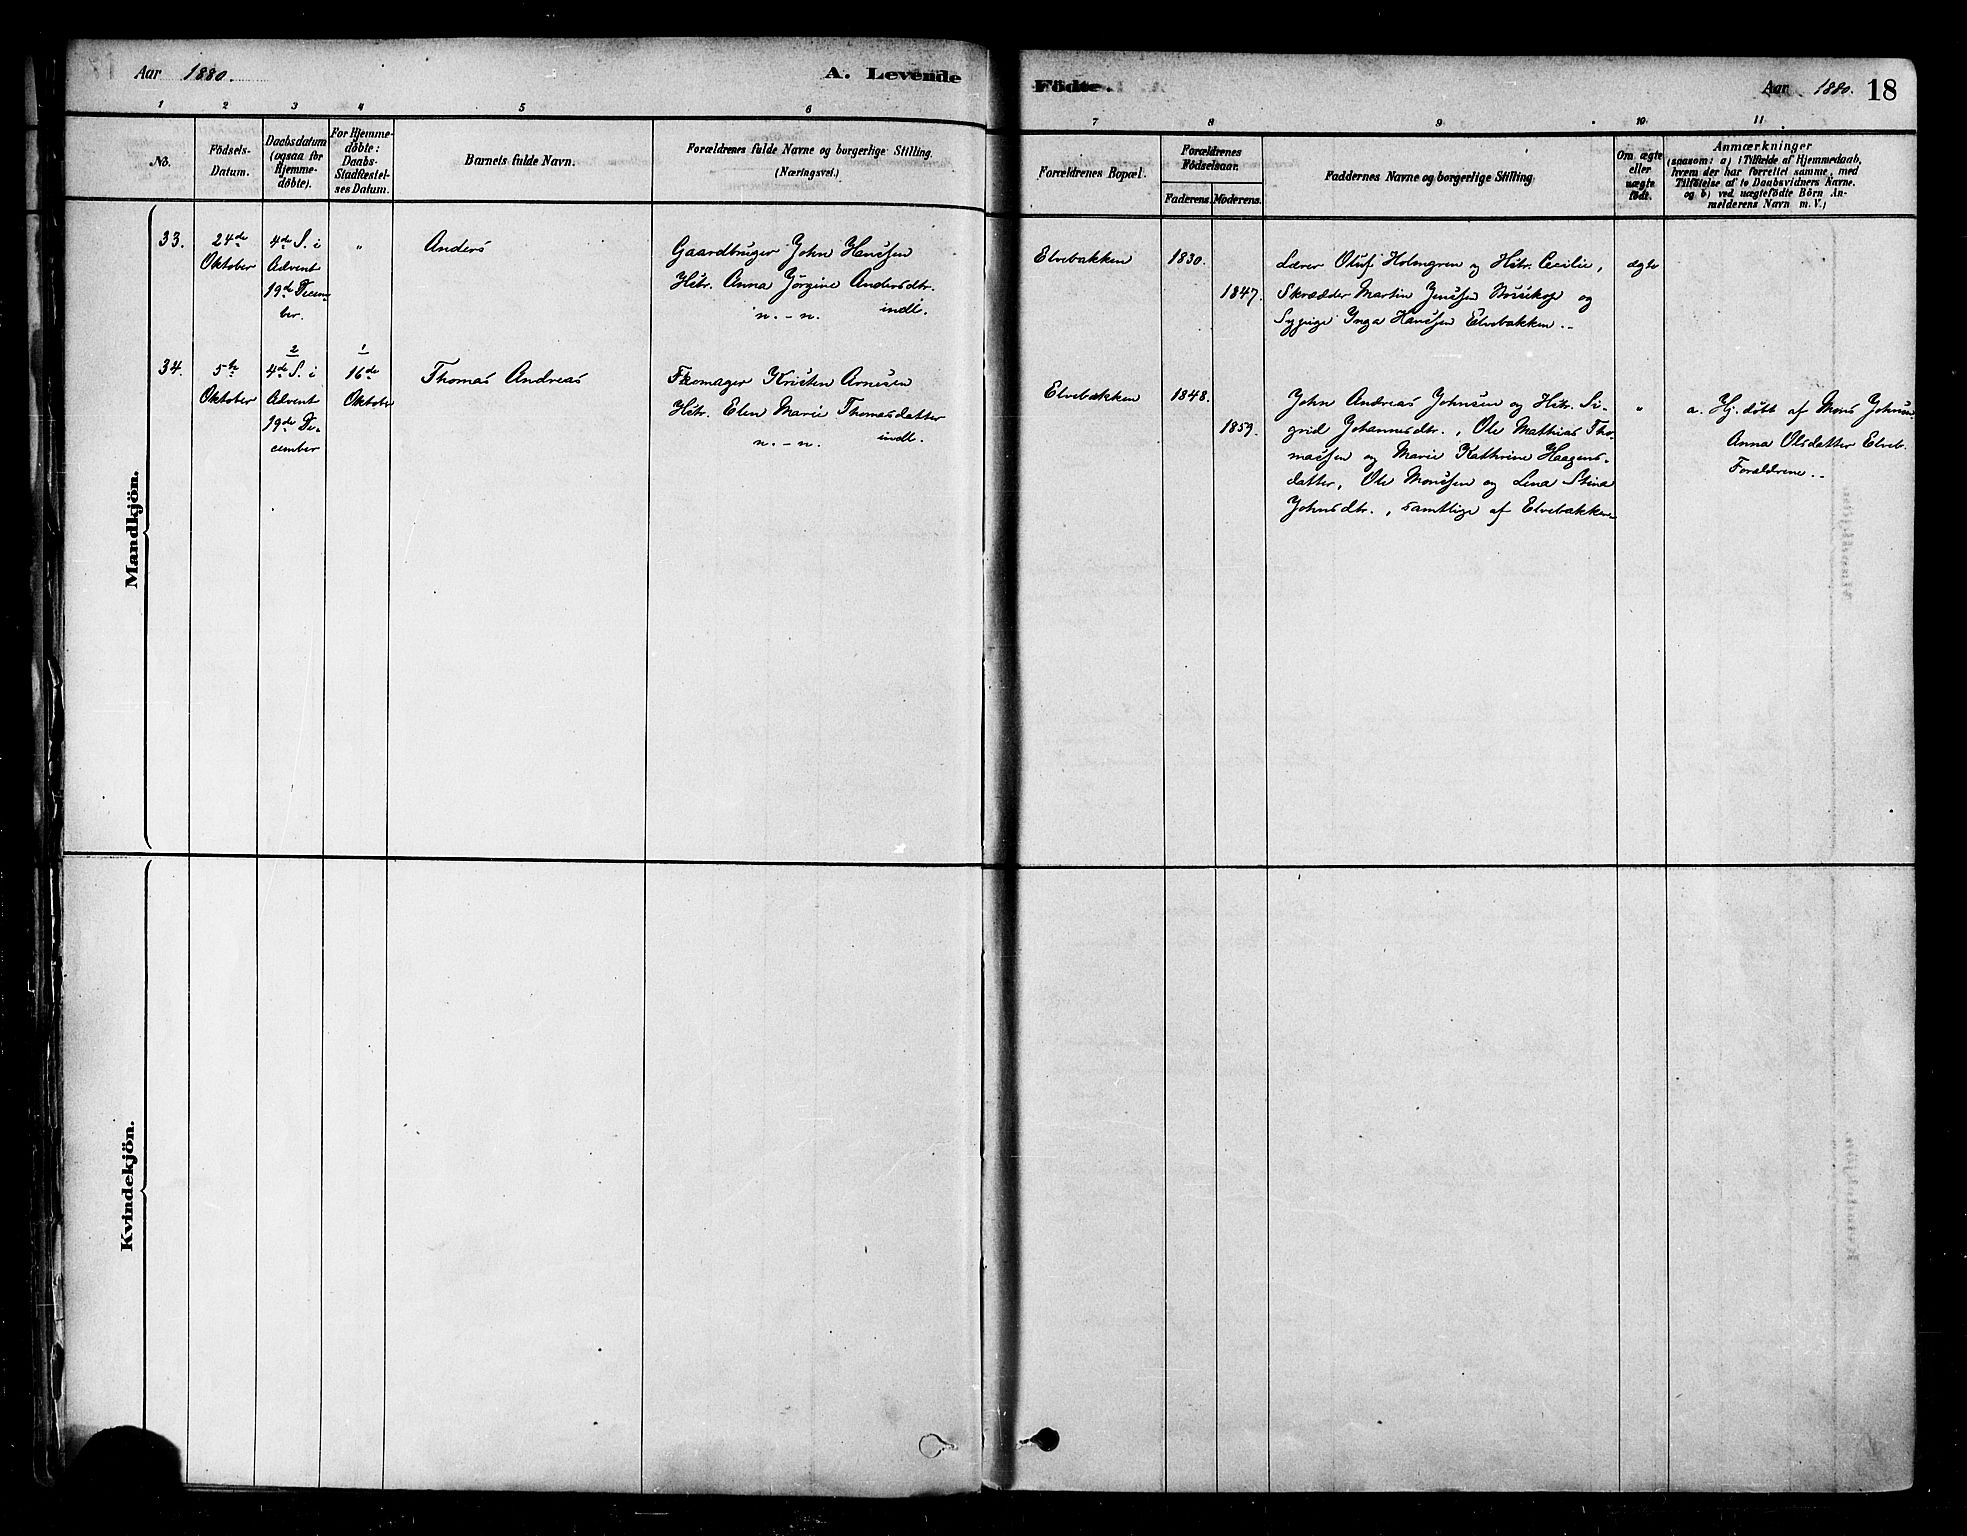 Aar 1880.
A. Levende
1 2 3 4 5 6
No.
Födsels-
Datum.
Daabsdatum
(ogsaa for
Hjemme-
döbte).
For Hjemme-
döbte:
Daabs-
Stadfæstel-
ses Datum.
Barnets fulde Navn.
Forældrenes fulde Navne og borgerlige Stilling.
(Næringsvei.)
Mandkjön.
33.
24de
Oktober
4de S. i
Advent
19de Decem-
ber.
"
Anders
Gaardbruger John Hansen
Hstr. Anna Jörgine Andersdtr.
n. - n. indl.
34.
5te
Oktober
2
4de S. i
Advent
19de De-
cember
1
16de
Oktober
Thomas Andreas
Fromager Kristen Arnesen
Hstr. Elen Marie Thomasdatter
n. - n. indl.
Kvindekjön.
Födte.
Aar 1880. 18
7 8 9 10 11
Forældrenes Bopæl.
Forældrenes
Födselsaar.
Faderens. Moderens.
Faddernes Navne og borgerlige Stilling
Om ægte
eller
uægte
födt.
Anmærkninger
(saasom: a) i Tilfælde af Hjemmedaab,
hvem der har forrettet samme, med
Tilföielse af to Daabsvidners Navne.
og b) ved uægtefödte Börn An-
melderens Navn m. V.)
Elvebakken
1830.
1847.
Lærer Oluf Holmgren og Hstr. Cecilie,
Skrædder Martin Jenssen Bossekop og
Sypige Inga Hanssen Elvebakken..
ægte
Elvebakken
1848.
1859.
John Andreas Johnsen og Hstr. Si-
grid Johannesdtr., Ole Mathias Tho-
massen og Marie Kathrine Haagens-
datter, Ole Monssen og Lena Stina
Johnsdtr., samtlige af Elvebakken
"
a. Hj. döbt af Mons Johnsen
Anna Olsdatter Elveb.
Forældrene..